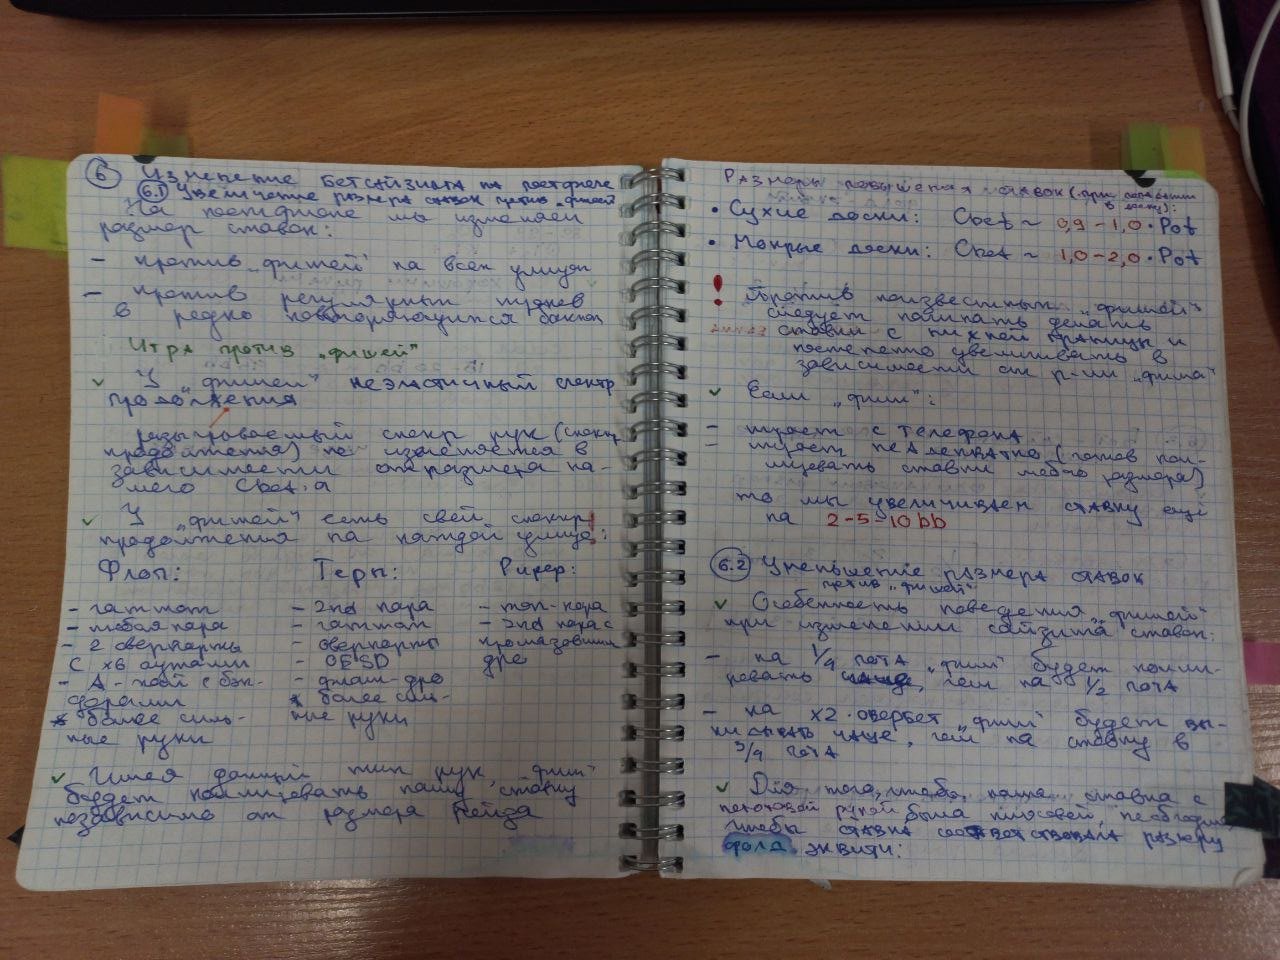 6 Изменение бетсайзинга на постфлопе
6.1 Увеличение размера ставок против „фишей“
На постфлопе мы изменяем
размер ставок:
- против „фишей“ на всех улицах
- против регулярных
в редко повторяющихся
Игра против „фишей“
✓ У „фишей“ неэластичный спектр
продолжения
разыгрываемый спектр рук (спектр
продолжения) не изменяется в
зависимости от размера на-
шего Cbet'а
✓ У „фишей“ есть свой спектр
продолжения на каждой улице!:
Флоп: Терн: Ривер:
- гатшот - 2nd пара - топ-пара
- любая пара - гатшот - 2nd пара с
- 2 оверкарты - оверкарты промазавшим
с x6 аутами - OESD дро
- A-хай с бэк- - флаш-дро
дорами * более силь-
* более силь- ные руки
ные руки
✓ Имея данный тип рук, „фиш“
будет коллировать нашу ставку
независимо от размера бета
Размеры повышения ставок (при попадании
в доску):
• Сухие доски: Cbet ~ 0,9-1,0 • Pot
• Мокрые доски: Cbet ~ 1,0-2,0 • Pot
! Против неизвестных „фишей“
следует начинать делать
ставки с нижней границы и
постепенно увеличивать в
зависимости от р-ии „фиша“
✓ Если „фиш“:
- играет с телефона
- играет неадекватно (готов кол-
лировать ставки любого размера)
то мы увеличиваем ставку ещё
на 2-5-10 bb
6.2 Уменьшение размера ставок
против „фишей“
✓ Особенность поведения „фишей“
при изменении сайзинга ставок:
- на 1/4 пота „фиш“ будет колли-
ровать чаще, чем на 1/2 пота
- на x2 • овербет „фиш“ будет вы-
кидывать чаще, чем на ставку в
3/4 пота
✓ Для того, чтобы наша ставка с
рукой была плюсовой, необходимо,
чтобы ставка соответствовала размеру
фолд эквити: